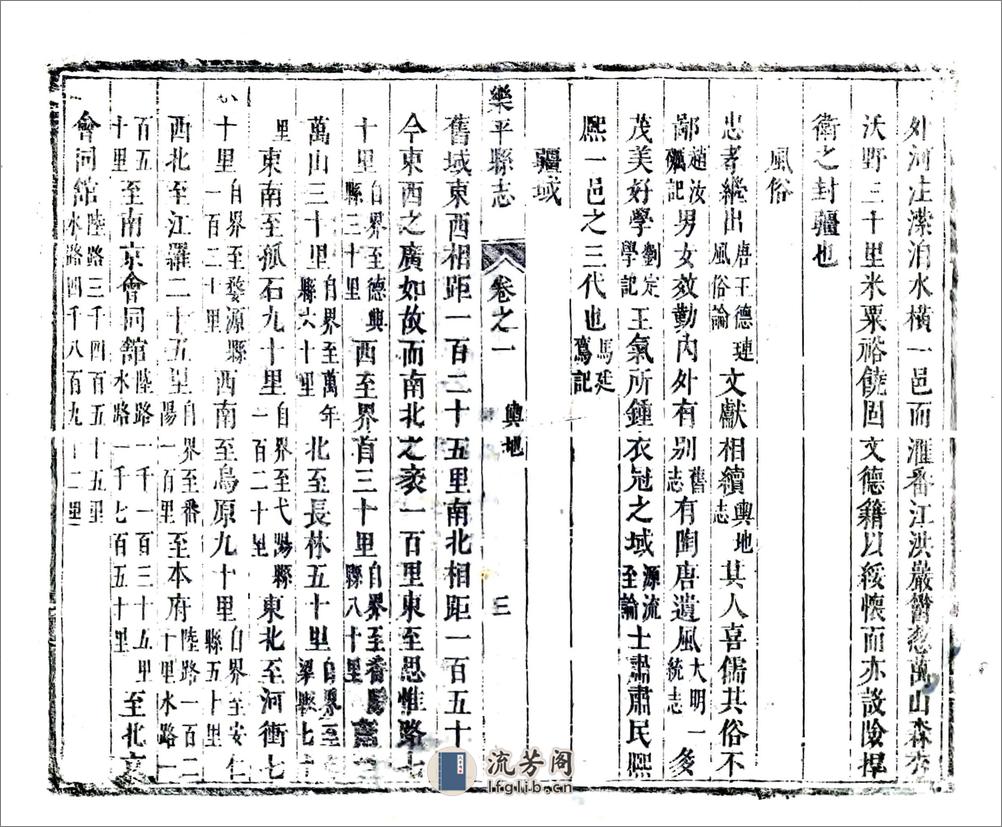 外河注瀠泊水橫一邑而滙番江洪巖聳㤠萬山森秀
沃野三十里米粟裕饒固文德籍以綏懷而亦設險捍
衛之封疆也
風俗
忠孝繼出唐王德璉風俗論文獻相續輿地志其人喜儒其俗不
鄙趙汝礪記男女效勤內外有別舊志有陶唐遺風大明一統志多
茂美好學劉定學記王氣所鍾衣冠之域源流至論士肅肅民熙
熙一邑之三代也馬廷鸞記
樂平縣志 卷之一 輿地 三
疆域
舊域東西相距一百二十五里南北相距一百五十
今東西之廣如故而南北之袤一百里東至思惟路七
十里自界至德興縣三十里西至界首三十里自界至番陽縣八十里
萬山三十里自界至萬年縣六十里北至長林五十里自界至梁縣七
里東南至孤石九十里自界至弋陽縣一百二十里東北至河衝七
十里自界至婺源縣一百二十里西南至烏原九十里自界至安仁縣五十里
西北至江羅二十五里自界至番陽一百里至本府陸路一百二十里水路一
百五十里至南京會同館陸路一千一百三十五里水路一千七百五十里至北京
會同館陸路三千四百五十五里水路四千八百九十二里
流芳阁
lfglib.cn